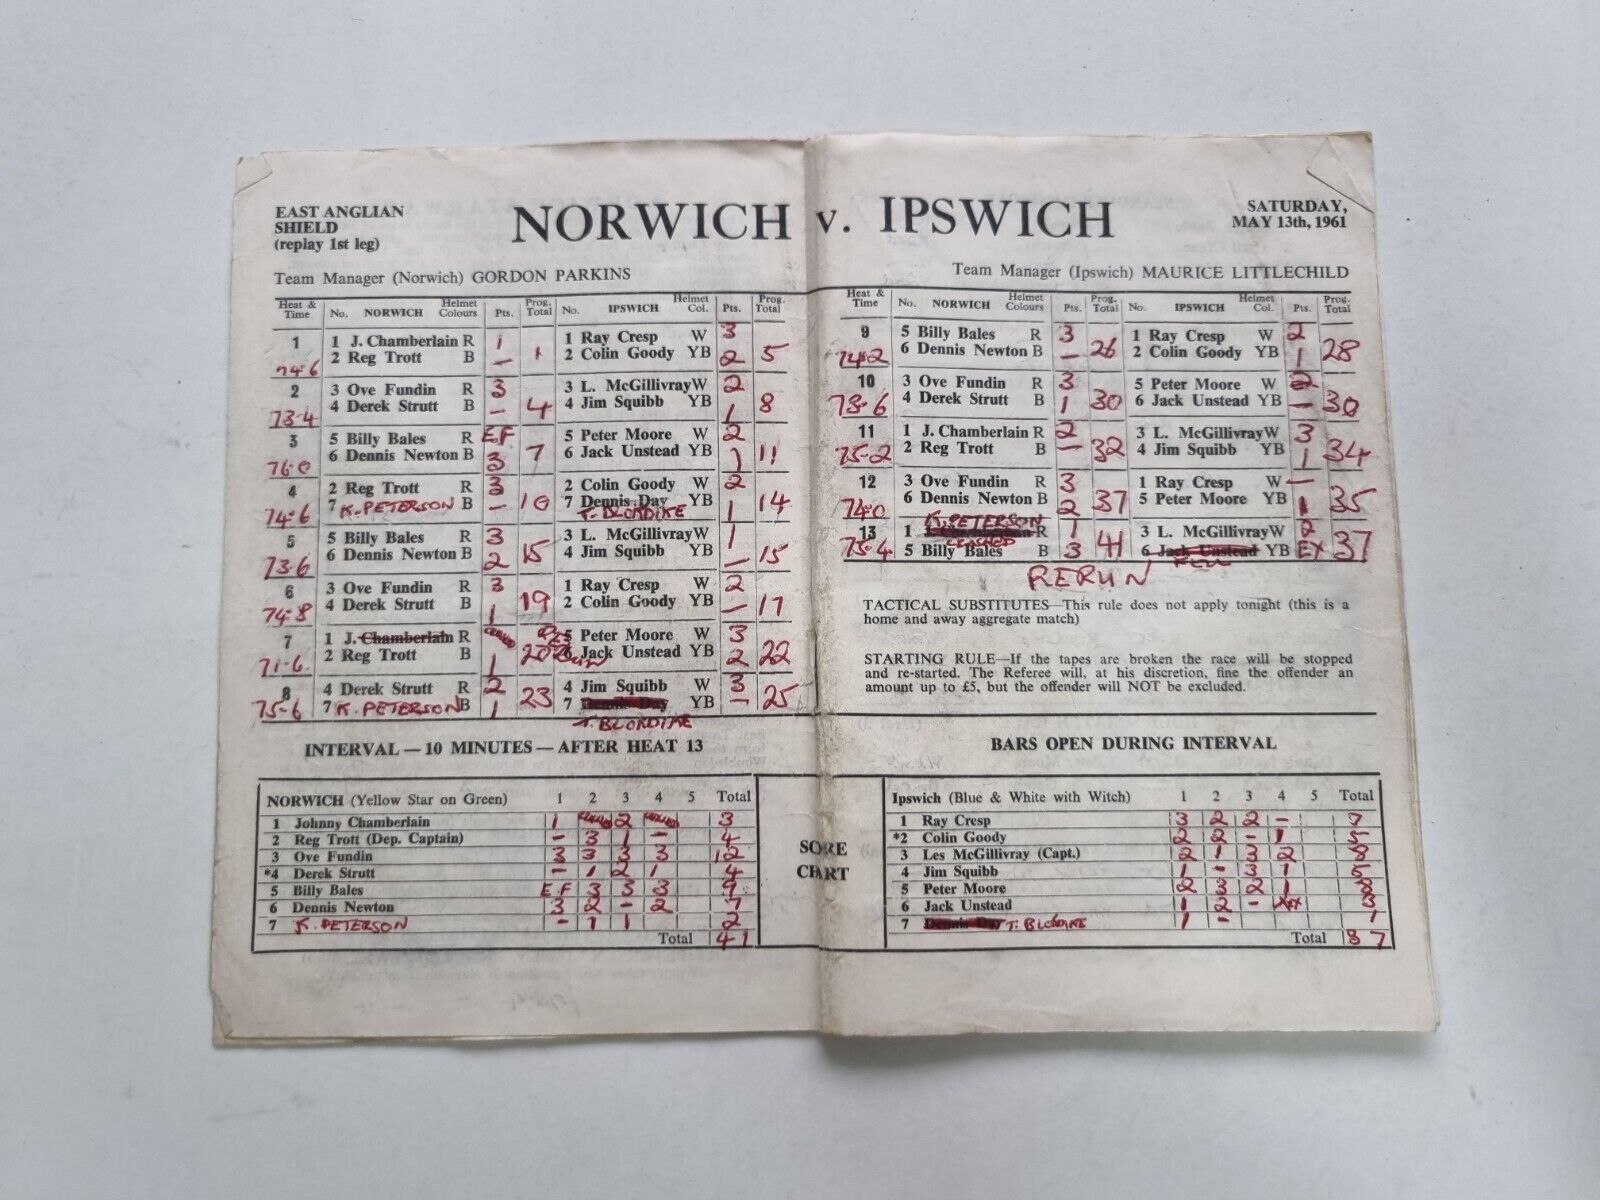 EAST ANGLIAN
SHIELD
(replay 1st leg)
NORWICH v. IPSWICH
SATURDAY,
MAY 13th, 1961
Team Manager (Norwich) GORDON PARKINS
Team Manager (Ipswich) MAURICE LITTLECHILD
Heat & Time No. NORWICH Helmet Colours Pts. Prog. Total No. IPSWICH Helmet Col. Pts. Prog. Total
1 1 J. Chamberlain R 1 1 Ray Cresp W 3
74·6 2 Reg Trott B – 1 2 Colin Goody YB 2 5
2 3 Ove Fundin R 3 3 L. McGillivray W 2
73·4 4 Derek Strutt B – 4 4 Jim Squibb YB 1 8
3 5 Billy Bales R E.F 5 Peter Moore W 2
76·0 6 Dennis Newton B 3 7 6 Jack Unstead YB 1 11
4 2 Reg Trott R 3 2 Colin Goody W 2
74·6 7 K. PETERSON B – 10 7 Dennis Day YB 1 14
T. BLOKDIKE
5 5 Billy Bales R 3 3 L. McGillivray W 1
73·6 6 Dennis Newton B 2 15 4 Jim Squibb YB – 15
6 3 Ove Fundin R 3 1 Ray Cresp W 2
74·8 4 Derek Strutt B 1 19 2 Colin Goody YB – 17
7 1 J. Chamberlain R 5 Peter Moore W 3
71·6 2 Reg Trott B 1 20 6 Jack Unstead YB 2 22
8 4 Derek Strutt R 2 4 Jim Squibb W 3
75·6 7 K. PETERSON B 1 23 7 Dennis Day YB – 25
T. BLOKDIKE
Heat & Time No. NORWICH Helmet Colours Pts. Prog. Total No. IPSWICH Helmet Col. Pts. Prog. Total
9 5 Billy Bales R 3 1 Ray Cresp W 2
74·2 6 Dennis Newton B – 26 2 Colin Goody YB 1 28
10 3 Ove Fundin R 3 5 Peter Moore W 2
73·6 4 Derek Strutt B 1 30 6 Jack Unstead YB – 30
11 1 J. Chamberlain R 2 3 L. McGillivray W 3
75·2 2 Reg Trott B – 32 4 Jim Squibb YB 1 34
12 3 Ove Fundin R 3 1 Ray Cresp W –
74·0 6 Dennis Newton B 2 37 5 Peter Moore YB 1 35
K. PETERSON
13 1 J. Chamberlain R 1 3 L. McGillivray W 2
75·4 5 Billy Bales B 3 41 6 Jack Unstead YB EX 37
FELL
RERUN
TACTICAL SUBSTITUTES—This rule does not apply tonight (this is a
home and away aggregate match)
STARTING RULE—If the tapes are broken the race will be stopped
and re-started. The Referee will, at his discretion, fine the offender
an amount up to £5, but the offender will NOT be excluded.
INTERVAL — 10 MINUTES — AFTER HEAT 13
BARS OPEN DURING INTERVAL
NORWICH (Yellow Star on Green) 1 2 3 4 5 Total
1 Johnny Chamberlain 1 2 3
2 Reg Trott (Dep. Captain) – 3 1 – 4
3 Ove Fundin 3 3 3 3 12
*4 Derek Strutt – 1 2 1 4
5 Billy Bales E.F 3 3 3 9
6 Dennis Newton 3 2 – 2 7
7 K. PETERSON – 1 1 2
Total 41
SORE
CHART
Ipswich (Blue & White with Witch) 1 2 3 4 5 Total
1 Ray Cresp 3 2 2 – 7
*2 Colin Goody 2 2 – 1 5
3 Les McGillivray (Capt.) 2 1 3 2 8
4 Jim Squibb 1 – 3 1 5
5 Peter Moore 2 3 2 1 8
6 Jack Unstead 1 2 – 3
7 Dennis Day T. BLOKDIKE 1 – 1
Total 37